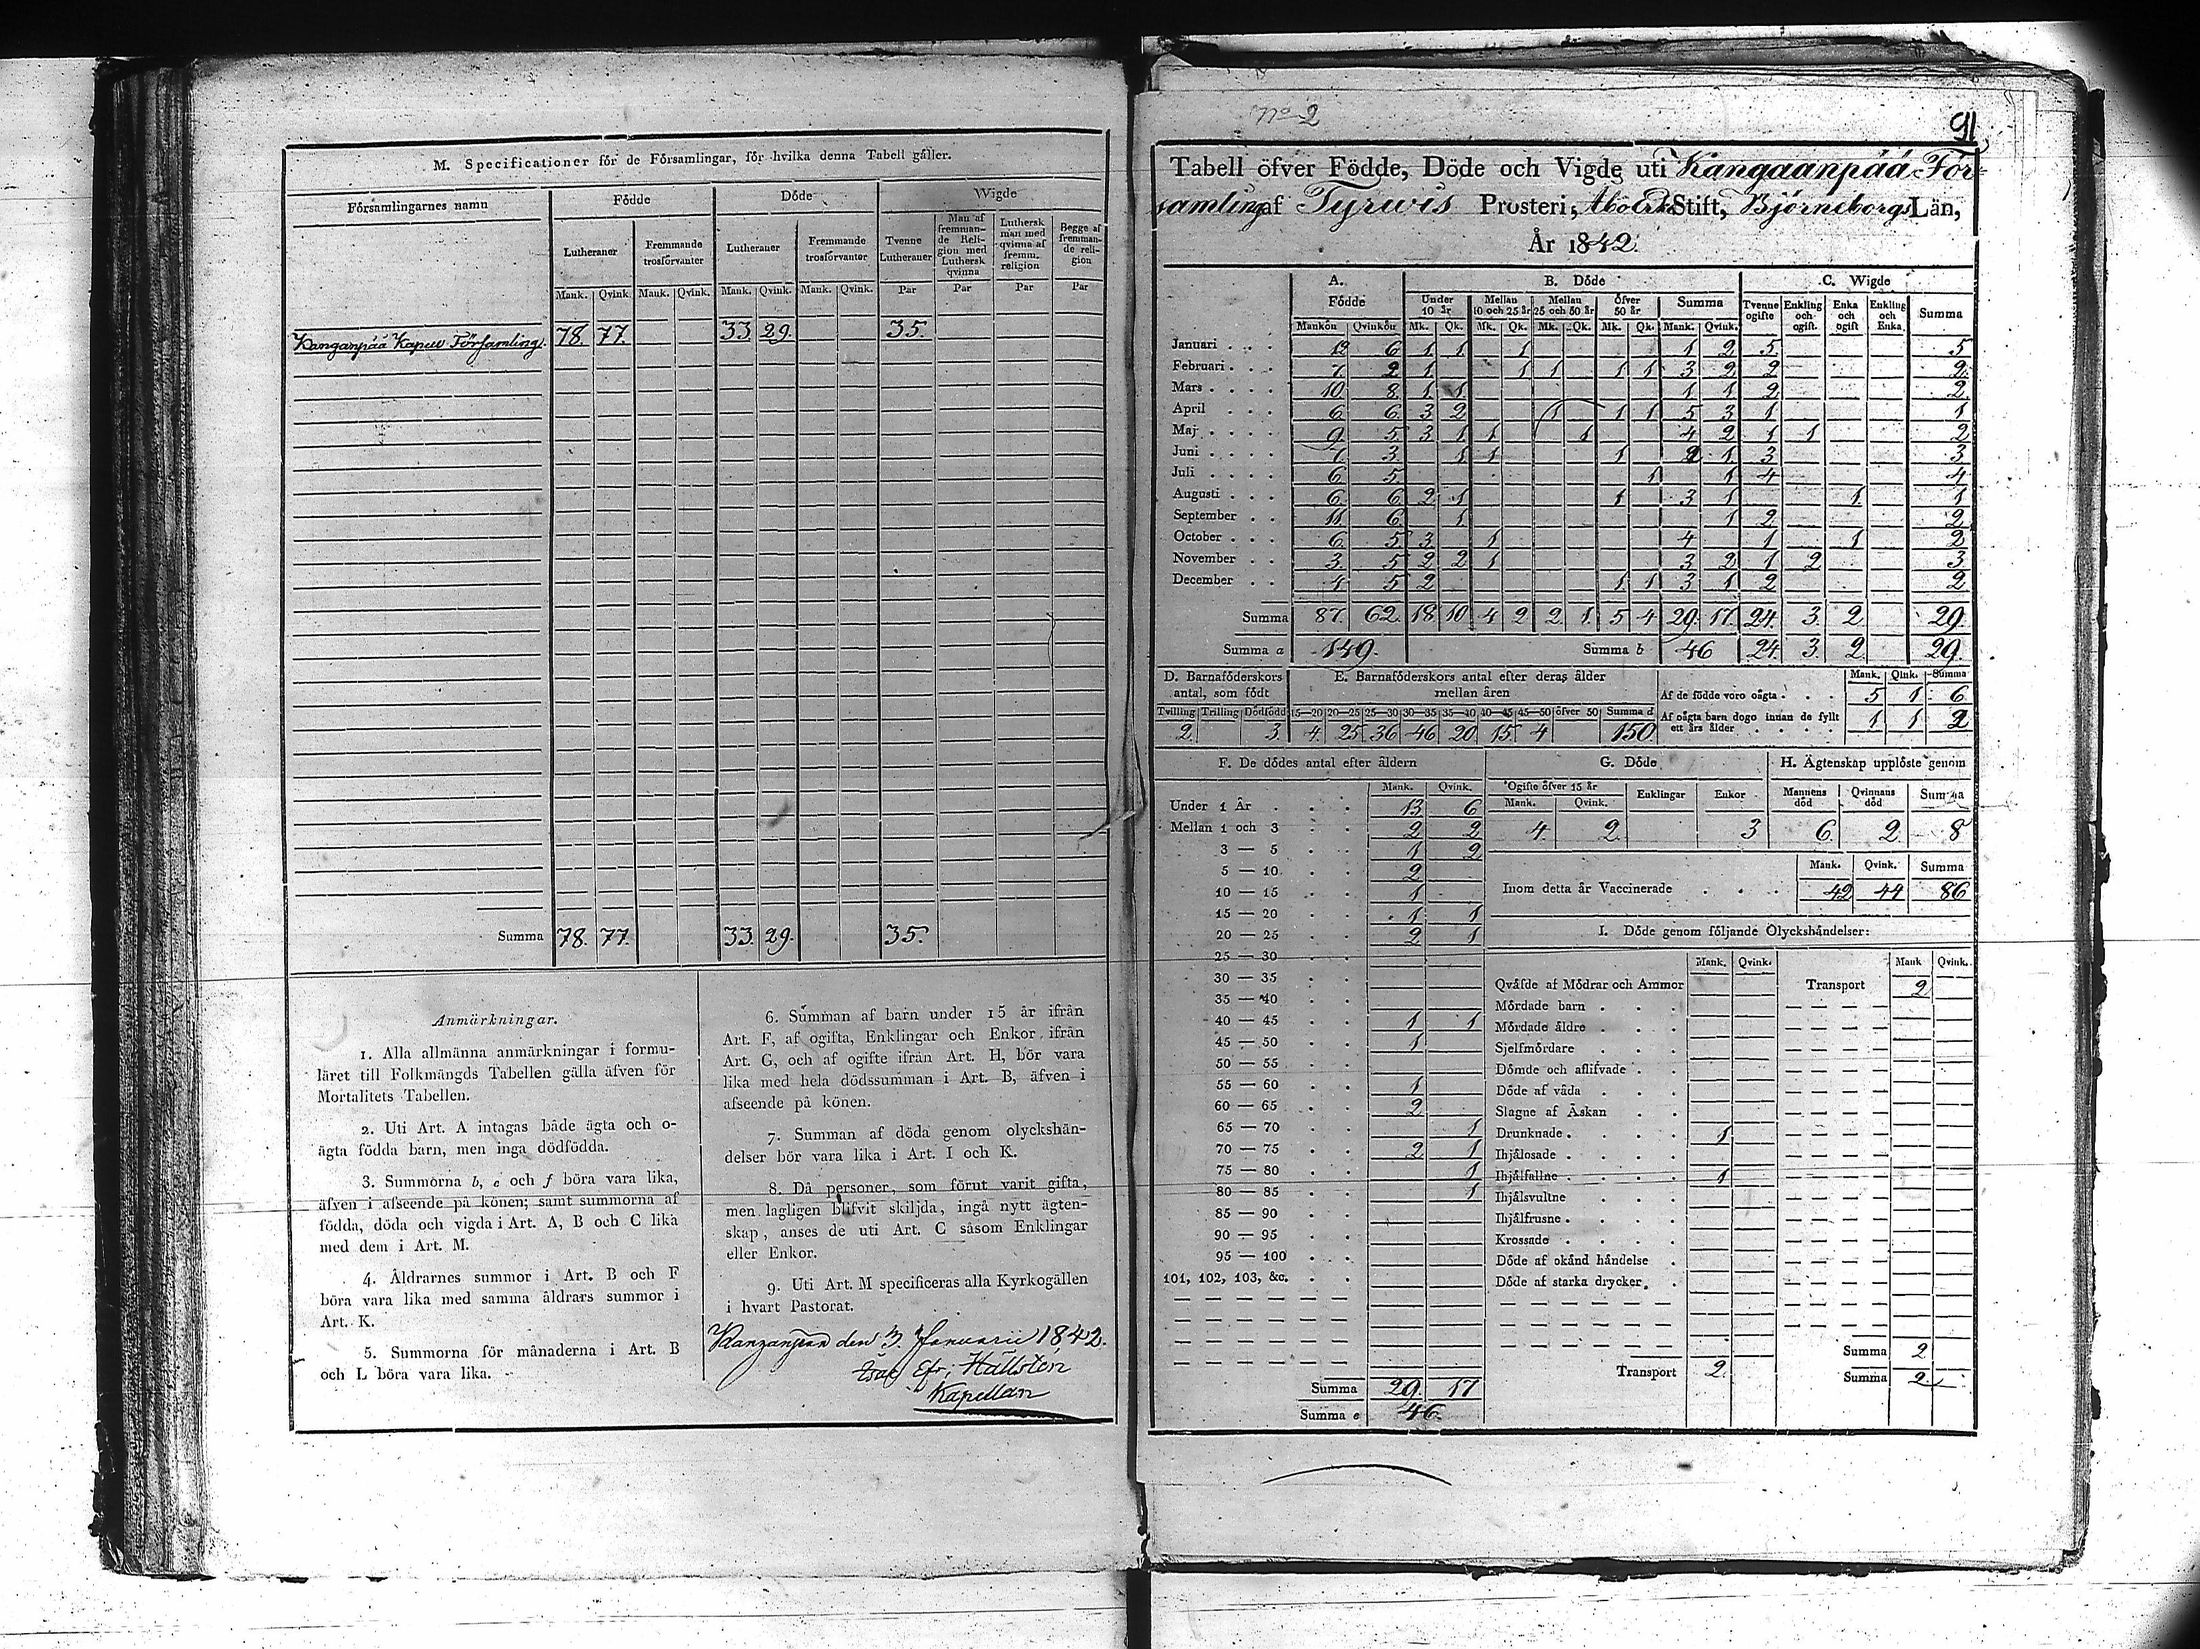 M. Specificationer för de Församlingar, för hvilka denna Tabell gäller.
Församlingarnes namn Födde Döde Wigde
Lutheraner Fremmande trosförvanter Lutheraner Fremmande trosförvanter Tvenne Lutheraner Man af fremmande Religion med Luthersk qvinna Luthersk man med qvinna af fremm. religion Begge af fremmande religion
Mank. Qvink. Mank. Qvink. Mank. Qvink. Mank. Qvink. Par Par Par Par
Kanganpää Kapell Församling. 78. 77. 33. 29. 35.
Summa 78. 77. 33. 29. 35.
Anmärkningar.
1. Alla allmänna anmärkningar i formu-
läret till Folkmängds Tabellen gälla äfven för
Mortalitets Tabellen.
2. Uti Art. A intagas både ägta och o-
ägta födda barn, men inga dödfödda.
3. Summorna b, e och f böra vara lika,
äfven i afseende på könen; samt summorna af
födda, döda och vigda i Art. A, B och C lika
med dem i Art. M.
4. Åldrarnes summor i Art. B och F
böra vara lika med samma åldrars summor i
Art. K.
5. Summorna för månaderna i Art. B
och L böra vara lika.
6. Summan af barn under 15 år ifrån
Art. F, af ogifta, Enklingar och Enkor ifrån
Art. G, och af ogifte ifrån Art. H, bör vara
lika med hela dödssumman i Art. B, äfven i
afseende på könen.
7. Summan af döda genom olyckshän-
delser bör vara lika i Art. I och K.
8. Då personer, som förut varit gifta,
men lagligen blifvit skiljda, ingå nytt ägten-
skap, anses de uti Art. C såsom Enklingar
eller Enkor.
9. Uti Art. M specificeras alla Kyrkogällen
i hvart Pastorat.
den 3. Januarii 1842.
Isac Efr. Hällsten
Kapellan
No 2
91
Tabell öfver Födde, Döde och Vigde uti Kangaanpää För-
samling af Tyrwis Prosteri, Åbo Erke Stift, Björneborgs Län,
År 1842.
A. Födde B. Döde C. Wigde
Under 10 år Mellan 10 och 25 år Mellan 25 och 50 år Öfver 50 år Summa Tvenne ogifte Enkling och ogift. Enka och ogift Enkling och Enka Summa
Mankön Qvinkön Mk. Qk. Mk. Qk. Mk. Qk. Mk. Qk. Mank. Qvink.
Januari 12 6 1 1 1 1 2 5 5
Februari 7 2 1 1 1 1 1 3 2 2 2
Mars 10 8 1 1 1 1 2 2
April 6 6 3 2 1 1 1 5 3 1 1
Maj 9 5 3 1 1 1 4 2 1 1 2
Juni 7 3 1 1 1 2 1 3 3
Juli 6 5 1 1 4 4
Augusti 6 6 2 1 1 3 1 1 1
September 11 6 1 1 2 2
October 6 5 3 1 4 1 1 2
November 3 5 2 2 1 3 2 1 2 3
December 4 5 2 1 1 3 1 2 2
Summa 87. 62. 18 10 4 2 2 1 5 4 29. 17. 24. 3. 2. 29.
Summa a 149. Summa b 46 24. 3. 2. 29.
D. Barnaföderskors antal, som födt E. Barnaföderskors antal efter deras ålder mellan åren Mank. Qink. Summa
Af de födde voro oägta 5 1 6
Tvilling Trilling Dödfödd 15—20 20—25 25—30 30—35 35—40 40—45 45—50 öfver 50 Summa d
Af oägta barn dogo innan de fyllt ett års ålder 1 1 2
2 3 4. 25 36 46 20 15 4 150
F. De dödes antal efter åldern
Mank. Qvink.
Under 1 År 13 6
Mellan 1 och 3 2 2
3 — 5 1 2
5 — 10 2
10 — 15 1
15 — 20 1 1
20 — 25 2 1
25 — 30
30 — 35
35 — 40
40 — 45 1 1
45 — 50 1
50 — 55
55 — 60 1
60 — 65 2
65 — 70 1
70 — 75 2 1
75 — 80 1
80 — 85 1
85 — 90
90 — 95
95 — 100
101, 102, 103, &c.
Summa 29. 17
Summa e 46.
G. Döde H. Ägtenskap upplöste genom
Ogifte öfver 15 år Enklingar Enkor Mannens död Qvinnans död Summa
Mank. Qvink.
4. 2. 3 6. 2. 8
Mank. Qvink. Summa
Inom detta år Vaccinerade 42 44 86
I. Döde genom följande Olyckshändelser:
Mank. Qvink. Mank Qvink.
Qväfde af Mödrar och Ammor Transport 2
Mördade barn
Mördade äldre
Sjelfmördare
Dömde och aflifvade
Döde af våda
Slagne af Åskan
Drunknade 1
Ihjälosade
Ihjälfallne 1
Ihjälsvultne
Ihjälfrusne
Krossade
Döde af okänd händelse
Döde af starka drycker
Summa 2
Transport 2. Summa 2.